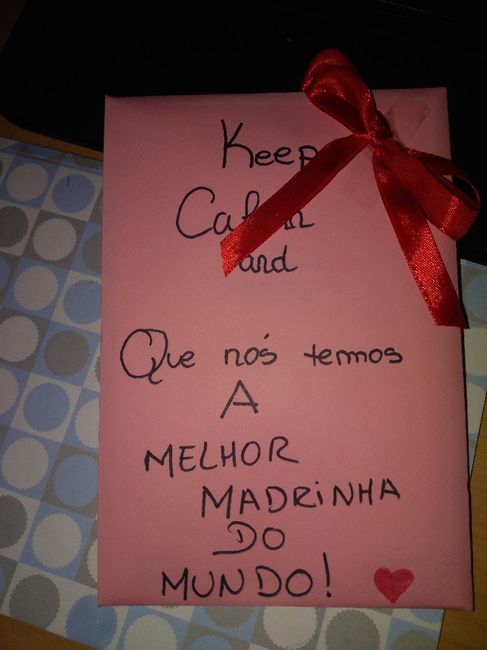 Keep
Calm
and
Que nós temos
A
MELHOR
MADRINHA
DO
MUNDO!